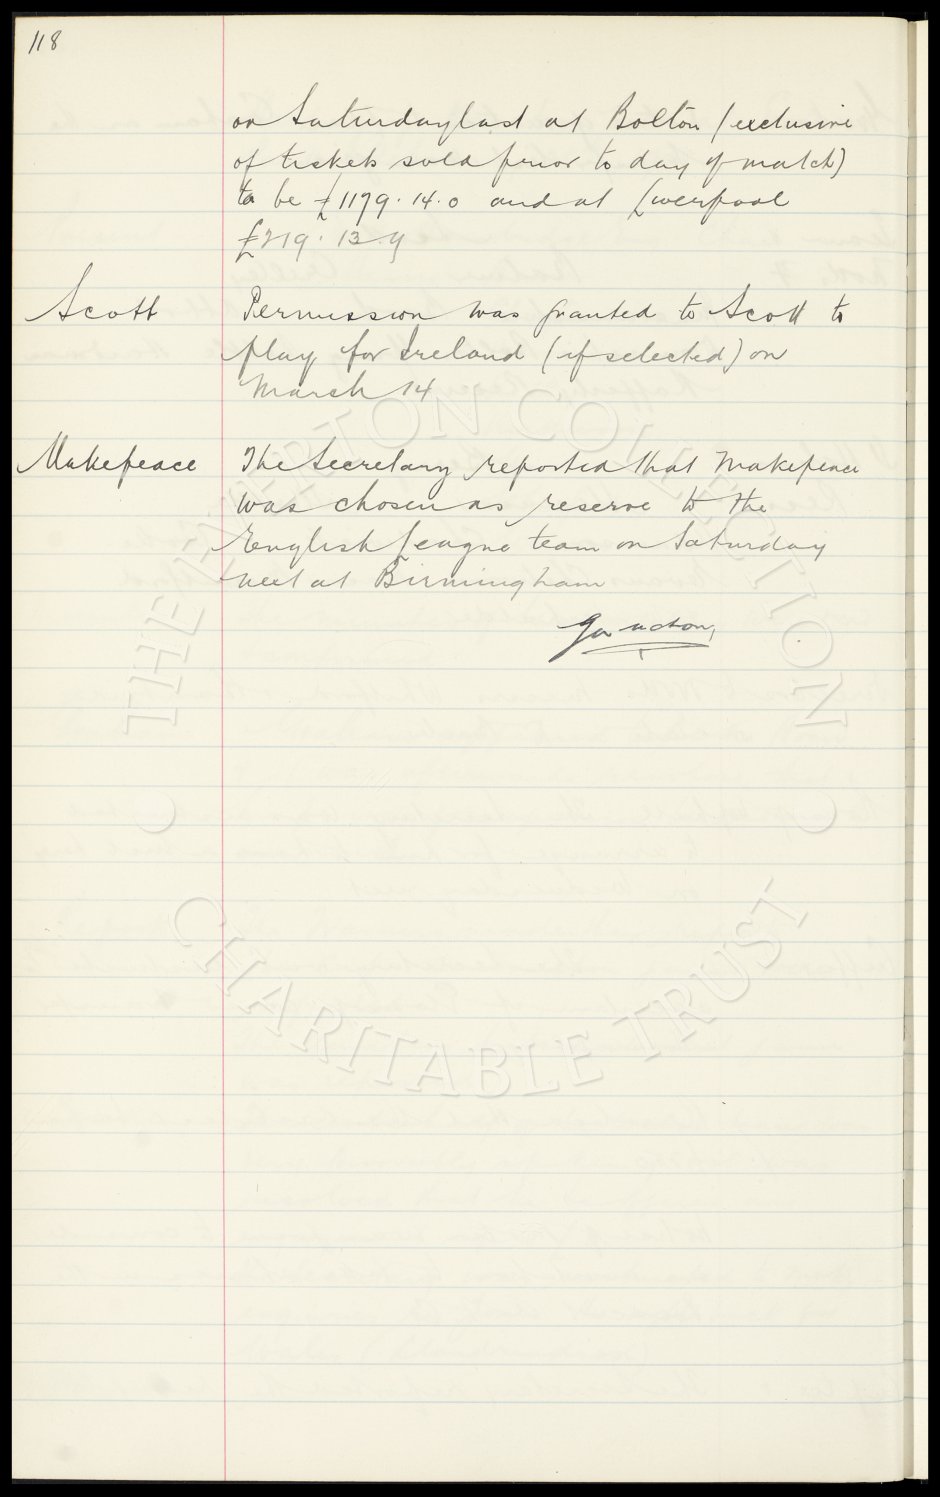 118
on Saturday last at Bolton (exclusive
of tickets sold prior to day of match)
to be £1179.14.0 and at Liverpool
£219.13.9
Scott
Permission was granted to Scott to
play for Ireland (if selected) on
March 14
Makepeace
The Secretary reported that Makepeace
was chosen as reserve to the
English League team on Saturday
next at Birmingham
THE EVERTON COLLECTION
CHARITABLE TRUST